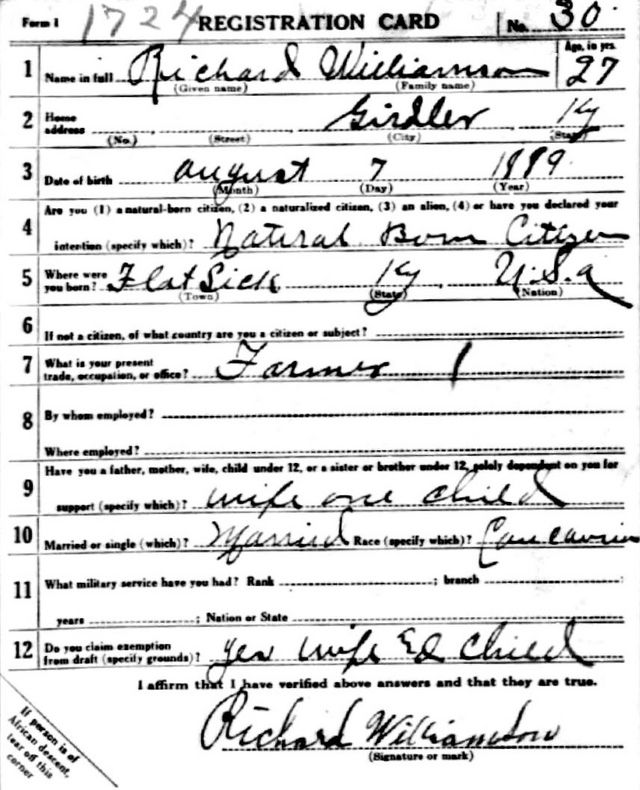 Form 1 1724 REGISTRATION CARD No. 30
1 Name in full Richard Williamson Age, in yrs. 27
(Given name) (Family name)
2 Home address Girdler Ky
(No.) (Street) (City) (State)
3 Date of birth August 7 1889
(Month) (Day) (Year)
Are you (1) a natural-born citizen, (2) a naturalized citizen, (3) an alien, (4) or have you declared your
4 intention (specify which)? Natural Born Citizen
5 Where were you born? Flat Lick Ky U.S.a
(Town) (State) (Nation)
6 If not a citizen, of what country are you a citizen or subject?
7 What is your present trade, occupation, or office? Farmer 1
8 By whom employed?
Where employed?
Have you a father, mother, wife, child under 12, or a sister or brother under 12, solely dependent on you for
9 support (specify which)? wife one child
10 Married or single (which)? Married Race (specify which)? Caucasian
11 What military service have you had? Rank ; branch
years ; Nation or State
12 Do you claim exemption from draft (specify grounds)? yes wife & child
I affirm that I have verified above answers and that they are true.
Richard Williamson
(Signature or mark)
If person is of
African descent,
tear off this
corner